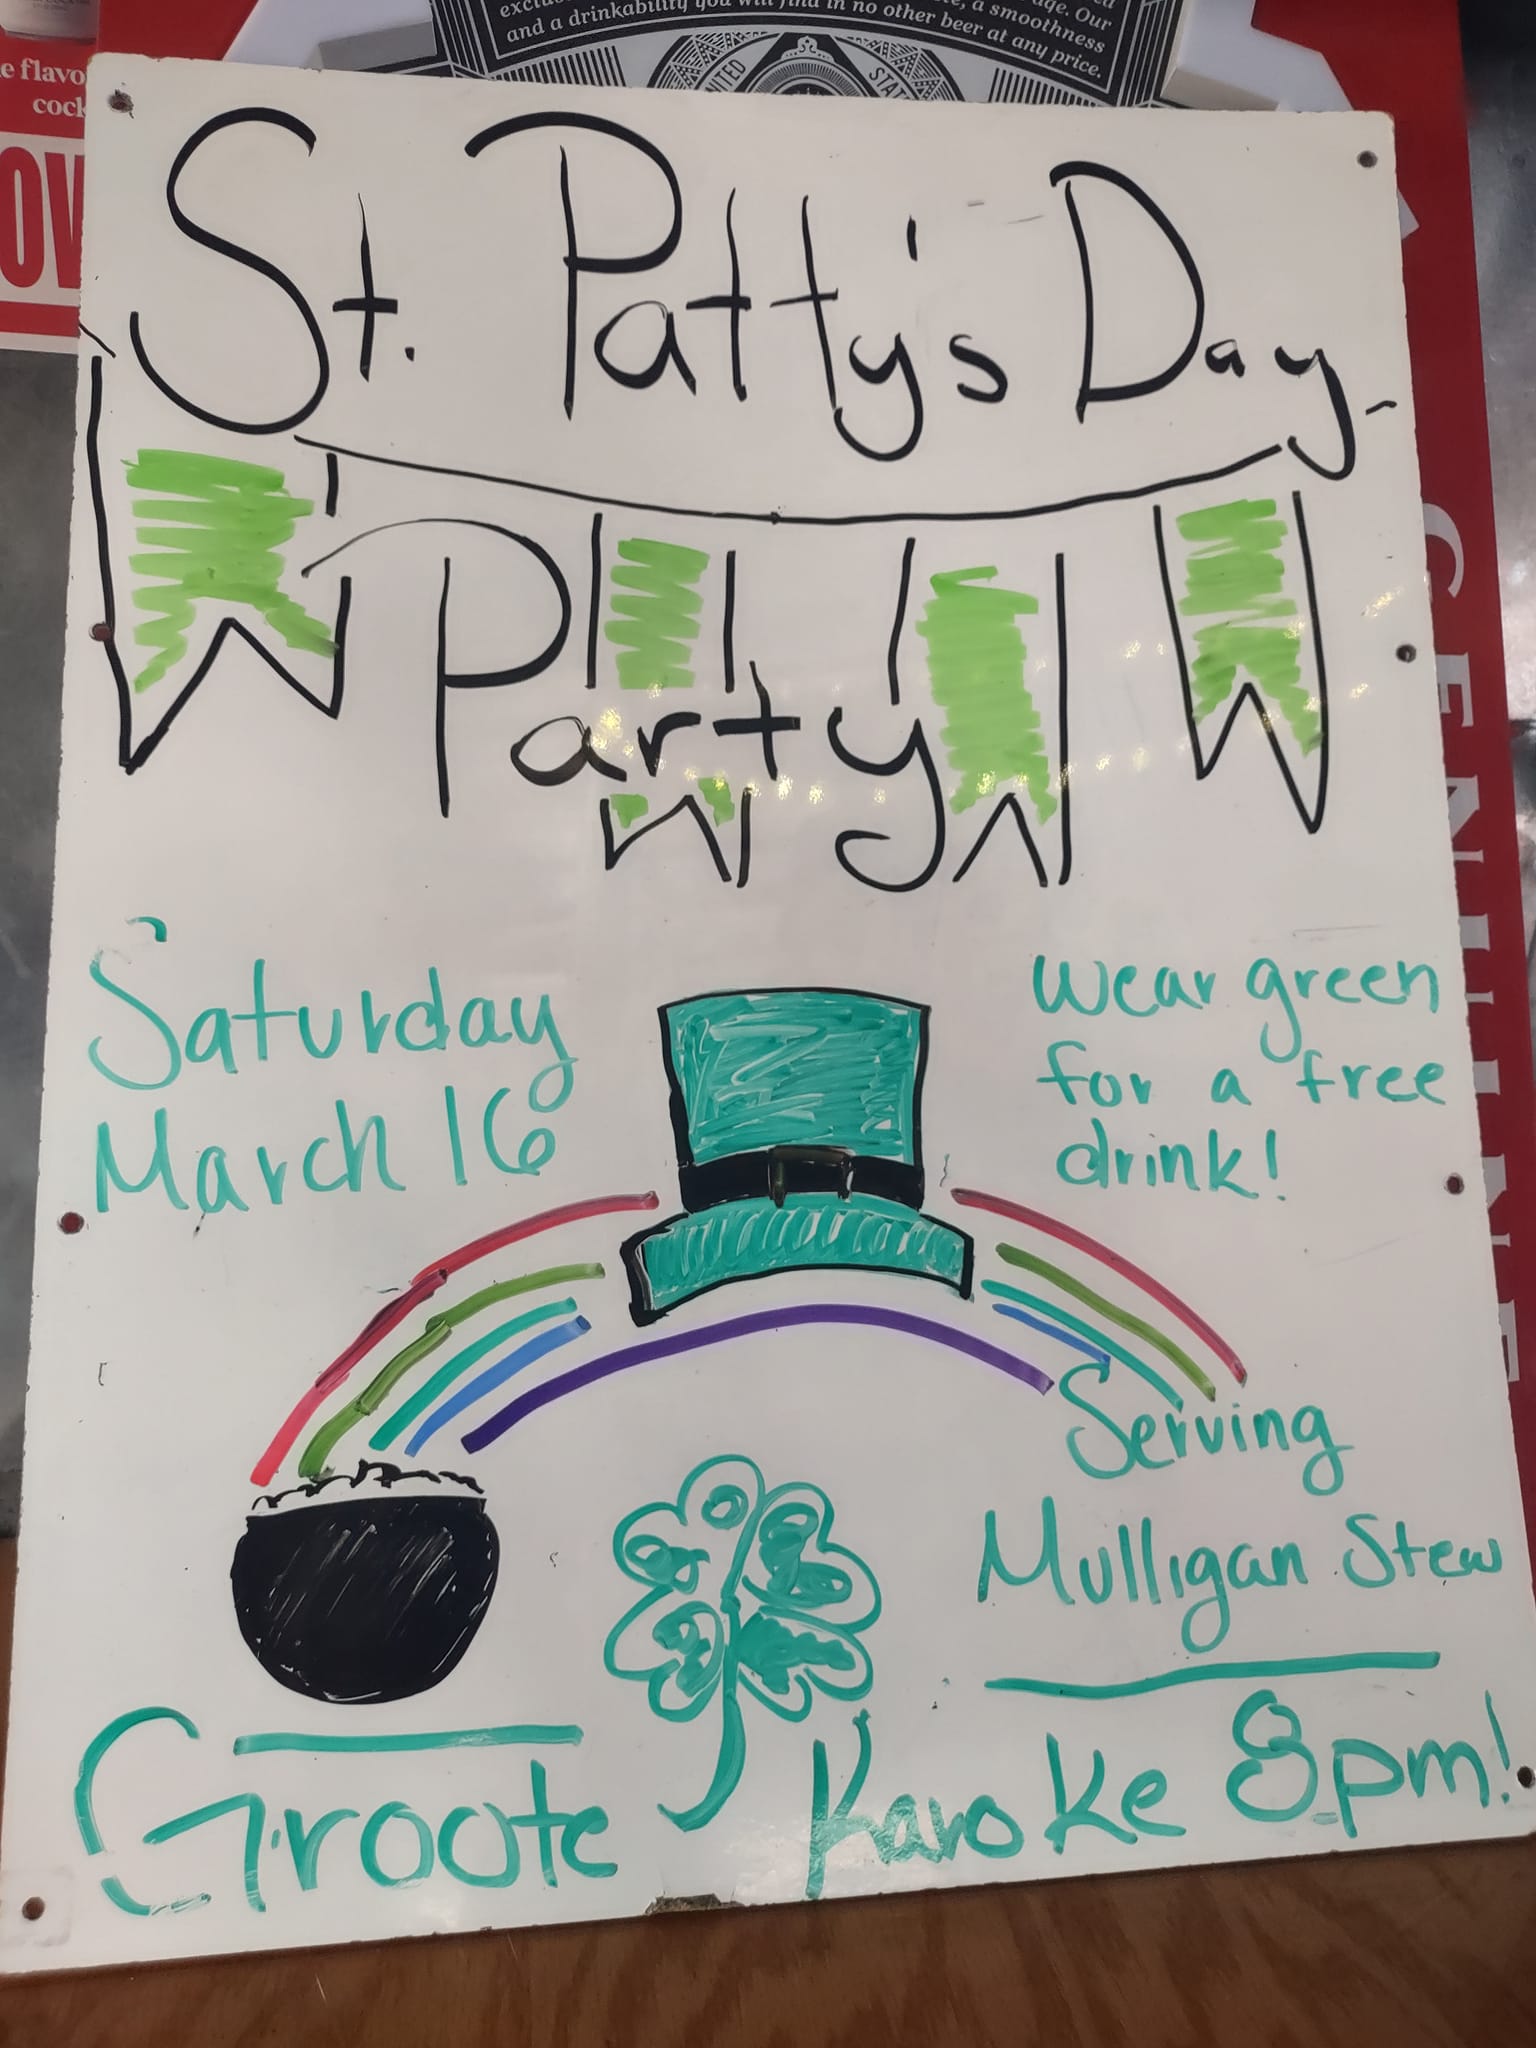 exclus
age. Our
and a drinkability you will find in no other beer at any price.
a smoothness
UNITED STAT
e flavo
cock
OW
GENUINE
St. Patty's Day
Party
Saturday
March 16
Wear green
for a free
drink!
Serving
Mulligan Stew
Groote Karaoke 8pm!